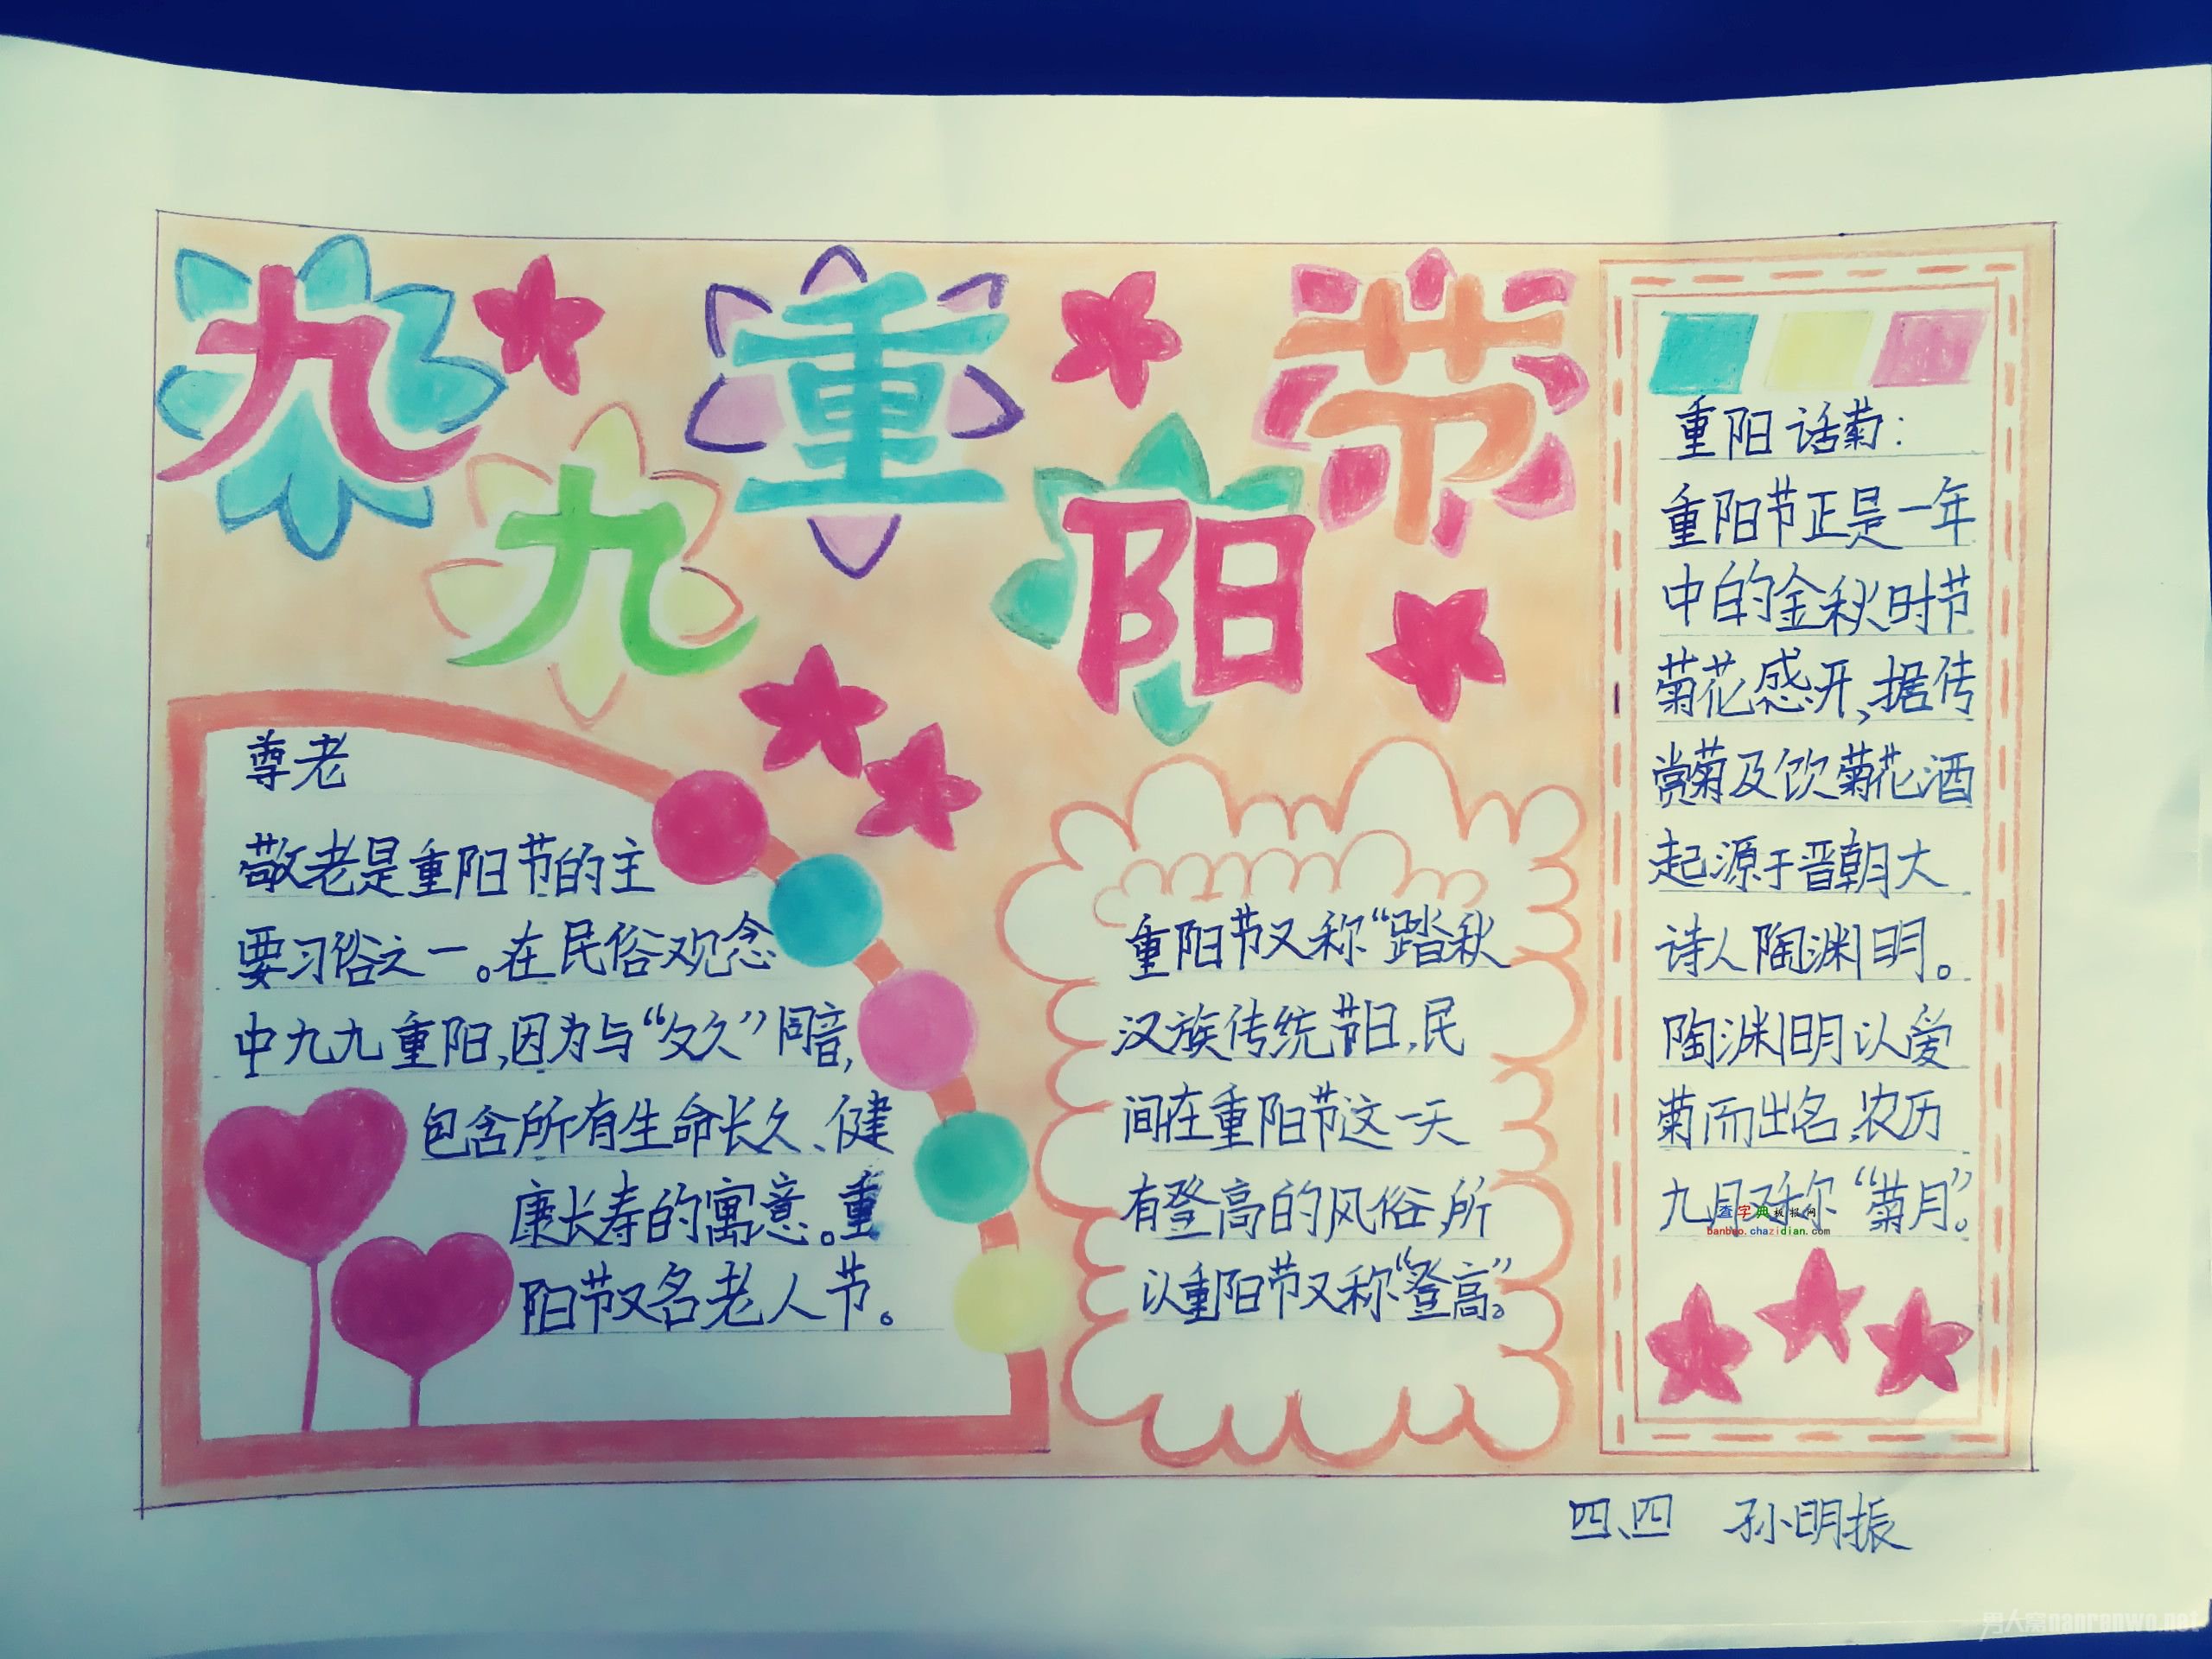 九九重阳节
尊老
敬老是重阳节的主
要习俗之一。在民俗观念
中九九重阳,因为与“久久”同音,
包含所有生命长久、健
康长寿的寓意。重
阳节又名老人节。
重阳节又称“踏秋
汉族传统节日,民
间在重阳节这一天
有登高的风俗,所
以重阳节又称“登高”。
重阳话菊:
重阳节正是一年
中的金秋时节
菊花感开、据传
赏菊及饮菊花酒
起源于晋朝大
诗人陶渊明。
陶渊明以爱
菊而出名,农历
九月又称“菊月”。
查字典板报网
banbao.chazidian.com
四、四 孙明振
男人窝nanrenwo.net